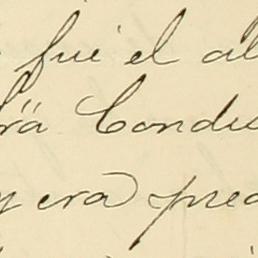 fué el al
rä Condu
y era pred